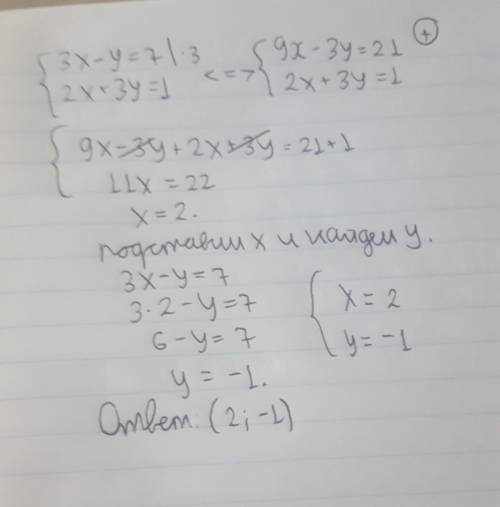 {3x-y=7|·3 <=> {9x-3y=21 (+)
{2x+3y=1 {2x+3y=1
{9x-3y+2x+3y=21+1
11x=22
x=2.
подставим x и найдем y.
3x-y=7
3·2-y=7 {x=2
6-y=7 {y=-1
y=-1.
Ответ: (2;-1)